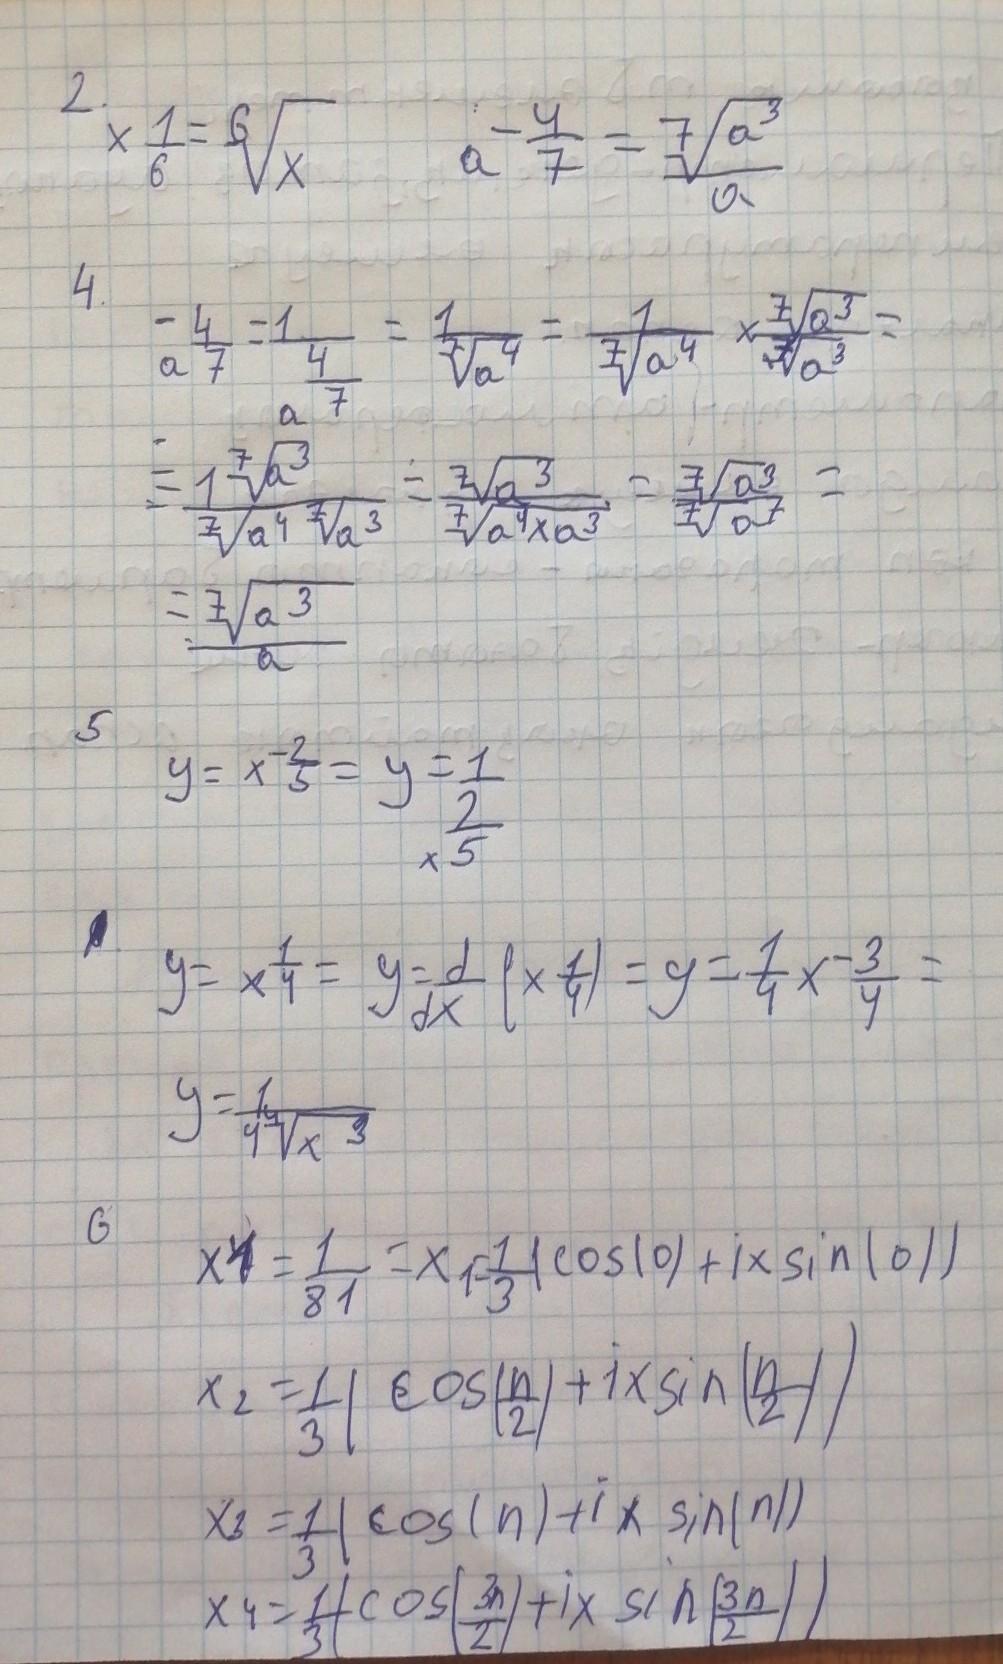 2.
x 1/6 = ⁶√x    a^-4/7 = ⁷√a³/a
4.
a^-4/7 = 1/a^4/7 = 1/⁷√a⁴ = 1/⁷√a⁴ x ⁷√a³/⁷√a³ =
= 1 ⁷√a³/⁷√a⁴ ⁷√a³ = ⁷√a³/⁷√a⁴xa³ = ⁷√a³/⁷√a⁷ =
= ⁷√a³/a
5
y = x^-2/5 = y = 1/x^2/5
y = x^1/4 = y = d/dx (x^1/4) = y = 1/4 x^-3/4 =
y = 1/4 ⁴√x³
6
x4 = 1/81 = x1 = 1/3 (cos(0) + ix sin(0))
x2 = 1/3 (cos(n/2) + ix sin(n/2))
x3 = 1/3 (cos(n) + ix sin(n))
x4 = 1/3 (cos(3n/2) + ix sin(3n/2))